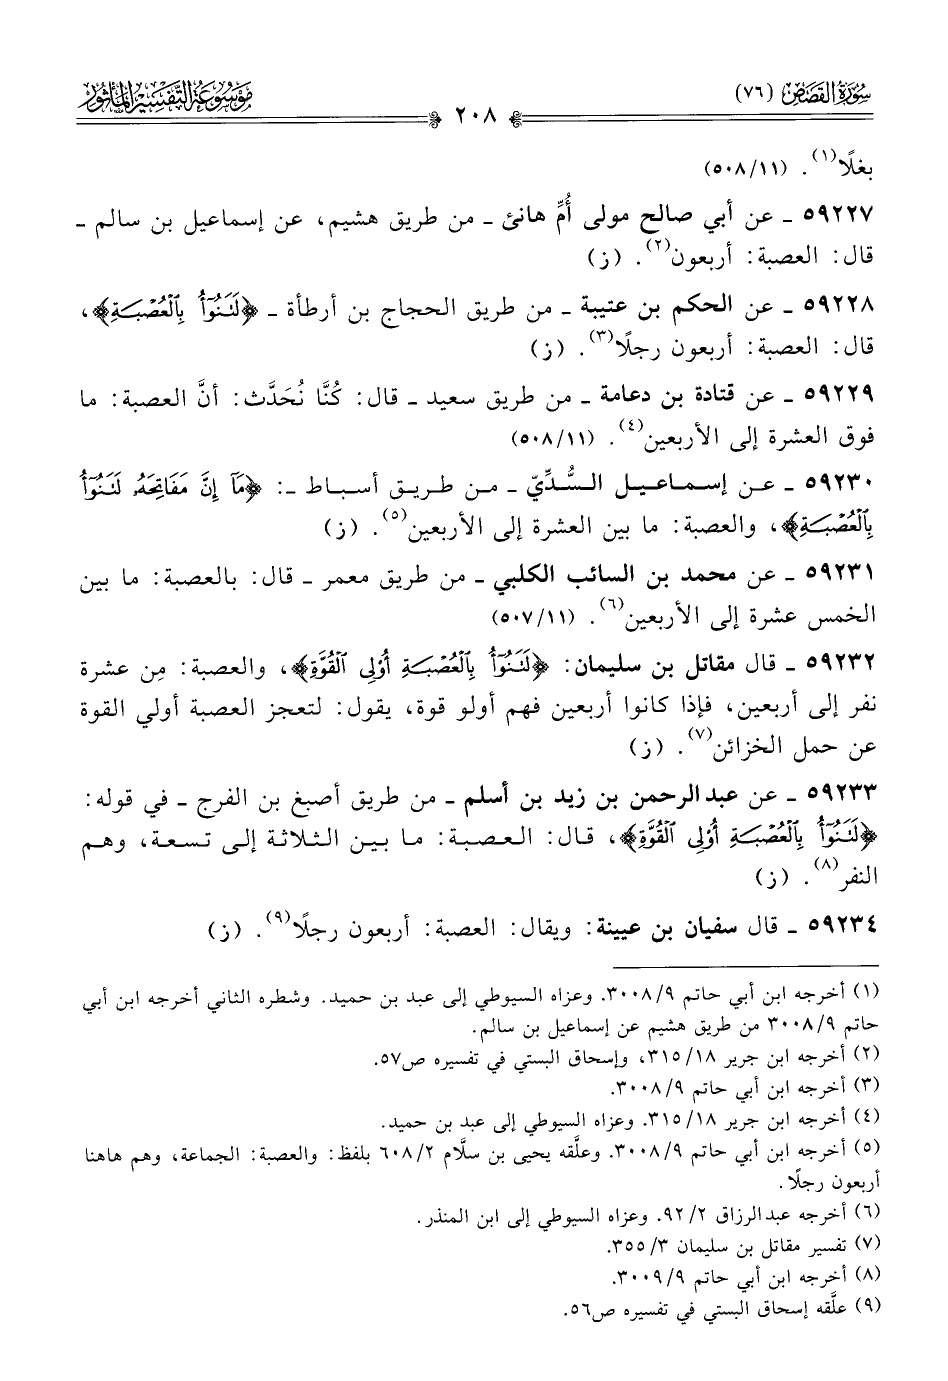 سورة القصص (٧٦)
٢٠٨
موسوعة التفسير المأثور
بغلًا(١). (٥٠٨/١١)
٥٩٢٢٧ ـ عن أبي صالح مولى أُمِّ هانئ ـ من طريق هشيم، عن إسماعيل بن سالم ـ
قال: العصبة: أربعون(٢). (ز)
٥٩٢٢٨ ـ عن الحكم بن عتيبة ـ من طريق الحجاج بن أرطأة ـ ﴿لَتَنُوٓأُ بِٱلْعُصْبَةِ﴾،
قال: العصبة: أربعون رجلًا(٣). (ز)
٥٩٢٢٩ ـ عن قتادة بن دعامة ـ من طريق سعيد ـ قال: كُنَّا نُحَدَّث: أنَّ العصبة: ما
فوق العشرة إلى الأربعين(٤). (٥٠٨/١١)
٥٩٢٣٠ ـ عن إسماعيل السُّدِّيّ ـ من طريق أسباط ـ: ﴿مَآ إِنَّ مَفَاتِحَهُۥ لَتَنُوٓأُ
بِٱلْعُصْبَةِ﴾، والعصبة: ما بين العشرة إلى الأربعين(٥). (ز)
٥٩٢٣١ ـ عن محمد بن السائب الكلبي ـ من طريق معمر ـ قال: بالعصبة: ما بين
الخمس عشرة إلى الأربعين(٦). (٥٠٧/١١)
٥٩٢٣٢ ـ قال مقاتل بن سليمان: ﴿لَتَنُوٓأُ بِٱلْعُصْبَةِ أُوْلِى ٱلْقُوَّةِ﴾، والعصبة: مِن عشرة
نفر إلى أربعين، فإذا كانوا أربعين فهم أولو قوة، يقول: لتعجز العصبة أولي القوة
عن حمل الخزائن(٧). (ز)
٥٩٢٣٣ ـ عن عبدالرحمن بن زيد بن أسلم ـ من طريق أصبغ بن الفرج ـ في قوله:
﴿لَتَنُوٓأُ بِٱلْعُصْبَةِ أُوْلِى ٱلْقُوَّةِ﴾، قال: العصبة: ما بين الثلاثة إلى تسعة، وهم
النفر(٨). (ز)
٥٩٢٣٤ ـ قال سفيان بن عيينة: ويقال: العصبة: أربعون رجلًا(٩). (ز)
(١) أخرجه ابن أبي حاتم ٣٠٠٨/٩. وعزاه السيوطي إلى عبد بن حميد. وشطره الثاني أخرجه ابن أبي
حاتم ٣٠٠٨/٩ من طريق هشيم عن إسماعيل بن سالم.
(٢) أخرجه ابن جرير ٣١٥/١٨، وإسحاق البستي في تفسيره ص٥٧.
(٣) أخرجه ابن أبي حاتم ٣٠٠٨/٩.
(٤) أخرجه ابن جرير ٣١٥/١٨. وعزاه السيوطي إلى عبد بن حميد.
(٥) أخرجه ابن أبي حاتم ٣٠٠٨/٩. وعلَّقه يحيى بن سلَّام ٦٠٨/٢ بلفظ: والعصبة: الجماعة، وهم هاهنا
أربعون رجلًا.
(٦) أخرجه عبدالرزاق ٩٢/٢. وعزاه السيوطي إلى ابن المنذر.
(٧) تفسير مقاتل بن سليمان ٣٥٥/٣.
(٨) أخرجه ابن أبي حاتم ٣٠٠٩/٩.
(٩) علَّقه إسحاق البستي في تفسيره ص٥٦.